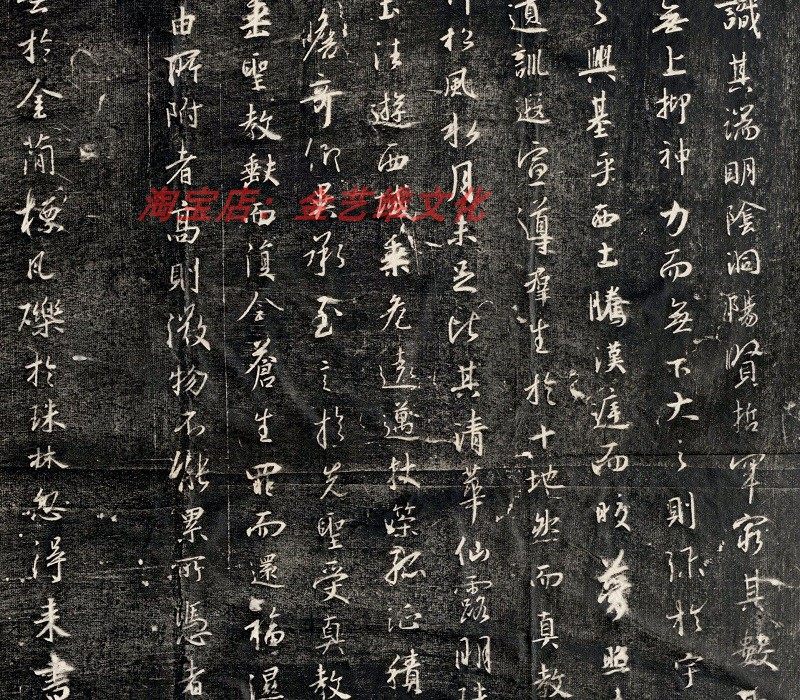 識其端明陰洞陽賢哲罕窮其數
無上抑神力而無下大之則彌於宇
之興基乎西土騰漢庭而皎夢照
道訓遐宣導羣生於十地然而真教
松風水月未足比其清華仙露明珠
出法遊西域乘危遠邁杖策孤征積
瞻奇仰異承至言於先聖受真教
乘聖教缺而復全蒼生罪而還福濕
由所附者高則微物不能累所憑者
於金簡標瓦礫於珠林忽得來書
淘宝店：金艺峨文化